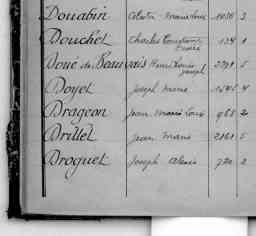 Douabin Celestin Marie Louis 1036 3
Douchet Charles Constant 134 1
Doué de Beauvais Henri Louis Joseph 2791 5
Doyet Joseph Marie 1545 4
Drageon Jean Marie Louis 968 2
Drillet Jean Marie 2161 5
Droguet Joseph Alexis 720 2